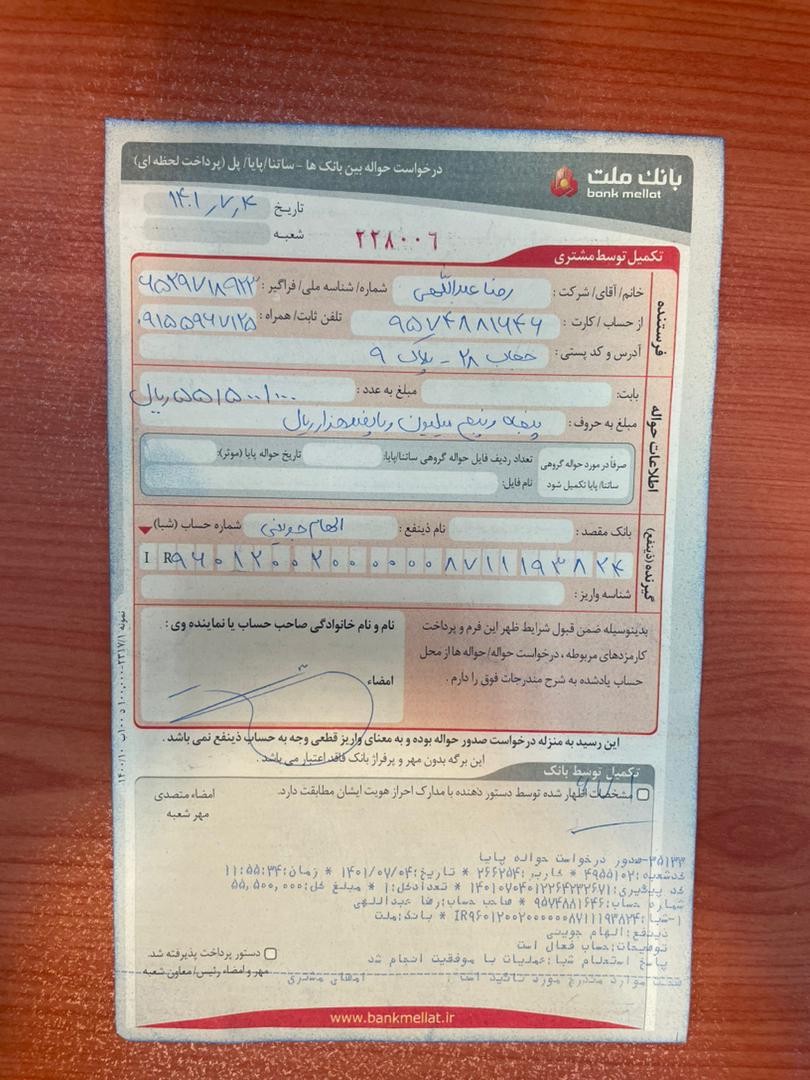 بانک ملت
bank mellat
درخواست حواله بین بانک ها - ساتنا/پایا/ پل (پرداخت لحظه ای)
تاریخ ۱۴۰۱/۷/۴
شعبه :
۲۲۸۰۰۶
تکمیل توسط مشتری
فرستنده
خانم/ آقای/ شرکت : رضا عبداللهی شماره/ شناسه ملی/ فراگیر :
از حساب / کارت : ۹۵۷۴۸۸۱۶۴۶ تلفن ثابت/ همراه : ۰۹۱۵۵۹۶۷۱۲۵
آدرس و کد پستی : ۲۸ - پلاک ۹
اطلاعات حواله
بابت: مبلغ به عدد : ۵۵/۵۰۰/۰۰۰ ریال
مبلغ به حروف : پنجاه و پنج میلیون و پانصد هزار ریال
صرفاً در مورد حواله گروهی ساتنا/ پایا تکمیل شود
تعداد ردیف فایل حواله گروهی ساتنا/پایا: تاریخ حواله پایا (موثر):
نام فایل:
گیرنده (ذینفع)
بانک مقصد : نام ذینفع : الهام جوینی شماره حساب (شبا)
IR ۹۶۰۱۲۰۰۲۰۰۰۰۰۰۸۷۱۱۱۹۳۸۲۴
شناسه واریز :
بدینوسیله ضمن قبول شرایط ظهر این فرم و پرداخت
کارمزدهای مربوطه ، درخواست حواله/حواله ها از محل
حساب یادشده به شرح مندرجات فوق را دارم .
نام و نام خانوادگی صاحب حساب یا نماینده وی :
امضاء
این رسید به منزله درخواست صدور حواله بوده و به معنای واریز قطعی وجه به حساب ذینفع نمی باشد .
این برگه بدون مهر و پرفراژ بانک فاقد اعتبار می باشد .
تکمیل توسط بانک
مشخصات اظهار شده توسط دستور دهنده با مدارک احراز هویت ایشان مطابقت دارد.
امضاء متصدی
مهر شعبه
۳۵۱۳۳-صدور درخواست حواله پایا
کدشعبه:۴۹۵۵۱۰۲ * کاربر:۲۶۶۲۵۴ * تاریخ:۱۴۰۱/۰۷/۰۴ * زمان:۱۱:۵۵:۳۴
کد پیگیری:۱۴۰۱۰۷۰۴۰۱۲۲۶۴۲۳۲۶۷۱ * تعدادکل:۱ * مبلغ کل:۵۵,۵۰۰,۰۰۰
شماره حساب:۹۵۷۴۸۸۱۶۴۶ * صاحب حساب:رضا عبداللهی
۱-شبا:IR۹۶۰۱۲۰۰۲۰۰۰۰۰۰۸۷۱۱۱۹۳۸۲۴ * بانک:ملت
ذینفع:الهام جوینی
توضیحات:حساب فعال است
پاسخ استعلام شبا:عملیات با موفقیت انجام شد
صحت موارد مندرج مورد تائید است . امضای مشتری
دستور پرداخت پذیرفته شد.
مهر و امضاء رئیس/ معاون شعبه
www.bankmellat.ir